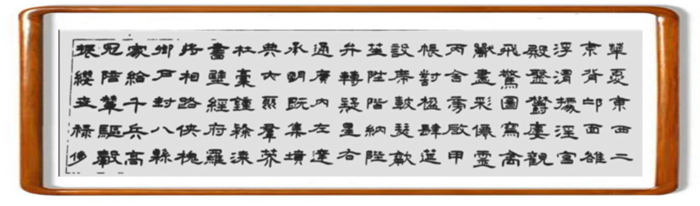 華夏東西二
京背邙面雒
浮渭據涇宮
殿盤鬱樓觀
飛驚圖寫禽
獸畫彩僊靈
丙舍傍啟甲
帳對楹肆筵
設席鼓瑟吹
笙陞階納陛
弁轉疑星右
通廣內左達
承明既集墳
典亦聚羣英
杜稾鍾隸漆
書壁經府羅
將相路俠槐
卿戶封八縣
家給千兵高
冠陪輦驅轂
振纓世祿侈